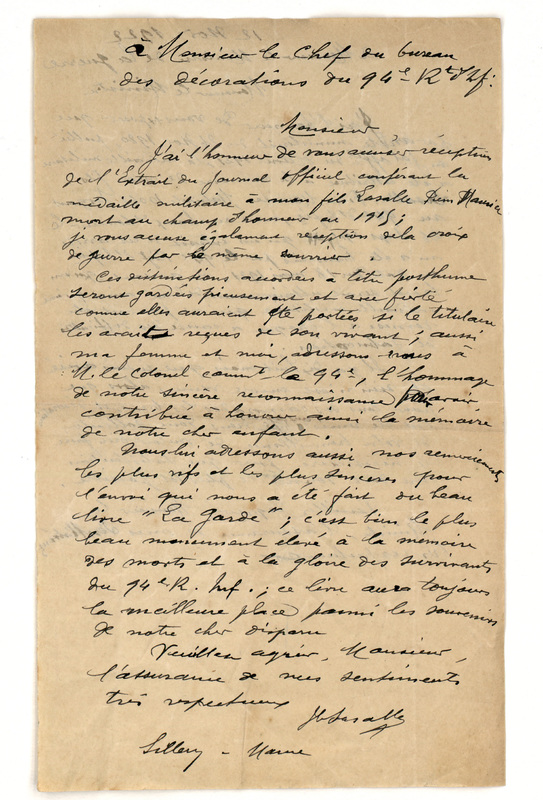 à Monsieur le Chef du bureau
des décorations du 94e Rt d'Inf:
Monsieur
J'ai l'honneur de vous accuser réception
de l'Extrait du Journal Officiel conférant la
médaille militaire à mon fils Lasalle Maurice
mort au champ d'honneur en 1915;
je vous accuse également réception de la croix
de guerre par le même courrier.
Ces distinctions accordées à titre posthume
seront gardées pieusement et avec fierté
comme elles auraient été portées si le titulaire
les avait reçues de son vivant; aussi
ma femme et moi, adressons nous à
M. le Colonel commt le 94e, l'hommage
de notre sincère reconnaissance pour avoir
contribué à honorer ainsi la mémoire
de notre cher enfant.
Nous lui adressons aussi nos remerciements
les plus vifs et les plus sincères pour
l'envoi qui nous a été fait du beau
livre "La Garde"; c'est bien le plus
beau monument élevé à la mémoire
des morts et à la gloire des survivants
du 94e R. Inf.; ce livre aura toujours
la meilleure place parmi les souvenirs
de notre cher disparu
Veuillez agréer, Monsieur,
l'assurance de mes sentiments
très respectueux
Lasalle
Sillery - Marne